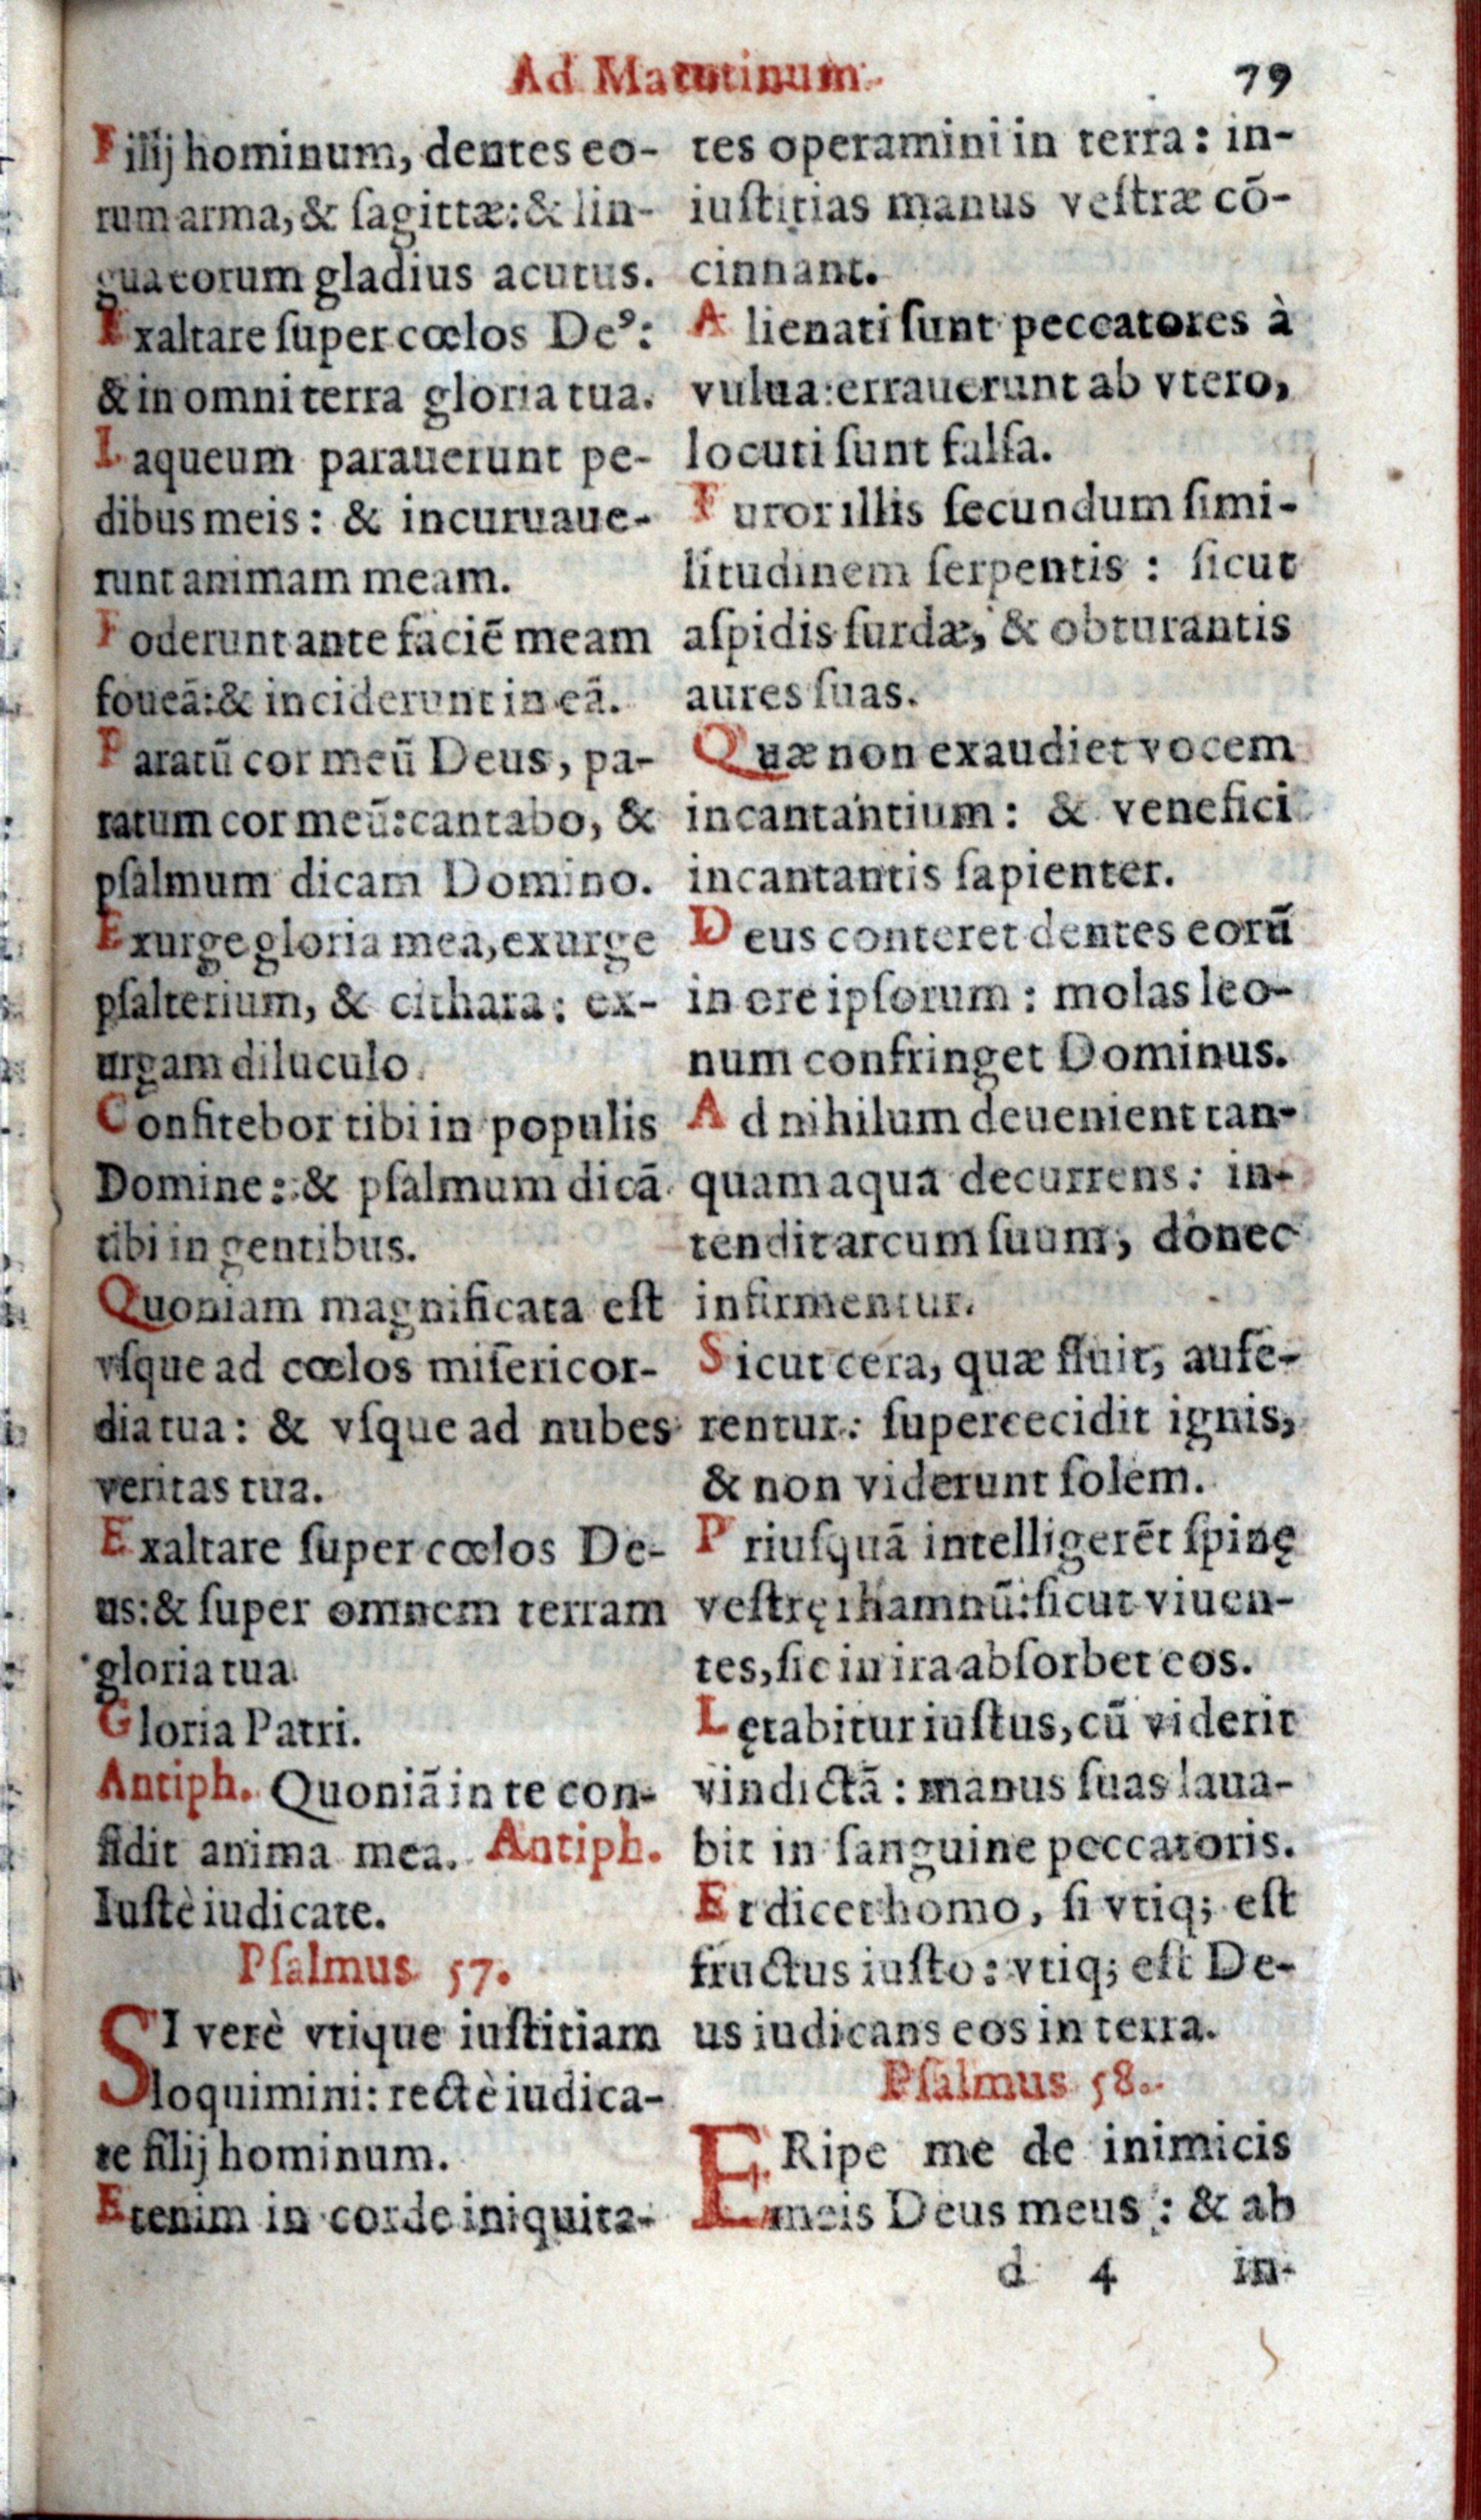 Ad Matutinum.
79
Filij hominum, dentes eo-
rum arma, & ſagittæ: & lin-
gua eorum gladius acutus.
Exaltare ſuper cœlos Deꝰ:
& in omni terra gloria tua.
Laqueum parauerunt pe-
dibus meis: & incuruaue-
runt animam meam.
Foderunt ante faciē meam
foueā: & inciderunt in eā.
Paratū cor meū Deus, pa-
ratum cor meū: cantabo, &
pſalmum dicam Domino.
Exurge gloria mea, exurge
pſalterium, & cithara: ex-
urgam diluculo.
Confitebor tibi in populis
Domine: & pſalmum dicā
tibi in gentibus.
Quoniam magnificata eſt
vſque ad cœlos miſericor-
dia tua: & vſque ad nubes
veritas tua.
Exaltare ſuper cœlos De-
us: & ſuper omnem terram
gloria tua.
Gloria Patri.
Antiph. Quoniā in te con-
fidit anima mea. Antiph.
Iuſtè iudicate.
Pſalmus 57.
SI verè vtique iuſtitiam
loquimini: rectè iudica-
te filij hominum.
Etenim in corde iniquita-
tes operamini in terra: in-
iuſtitias manus veſtræ cō-
cinnant.
Alienati ſunt peccatores à
vulua: errauerunt ab vtero,
locuti ſunt falſa.
Furor illis ſecundum ſimi-
litudinem ſerpentis: ſicut
aſpidis ſurdæ, & obturantis
aures ſuas.
Quæ non exaudiet vocem
incantantium: & venefici
incantantis ſapienter.
Deus conteret dentes eorū
in ore ipſorum: molas leo-
num confringet Dominus.
Ad nihilum deuenient tan-
quam aqua decurrens: in-
tendit arcum ſuum, donec
infirmentur.
Sicut cera, quæ fluit, aufe-
rentur: ſupercecidit ignis,
& non viderunt ſolem.
Priuſquā intelligerēt ſpinę
veſtrę rhamnū: ſicut viuen-
tes, ſic in ira abſorbet eos.
Lętabitur iuſtus, cū viderit
vindictā: manus ſuas laua-
bit in ſanguine peccatoris.
Et dicet homo, ſi vtiq; eſt
fructus iuſto: vtiq; eſt De-
us iudicans eos in terra.
Pſalmus 58.
ERipe me de inimicis
meis Deus meus: & ab
d 4 in-